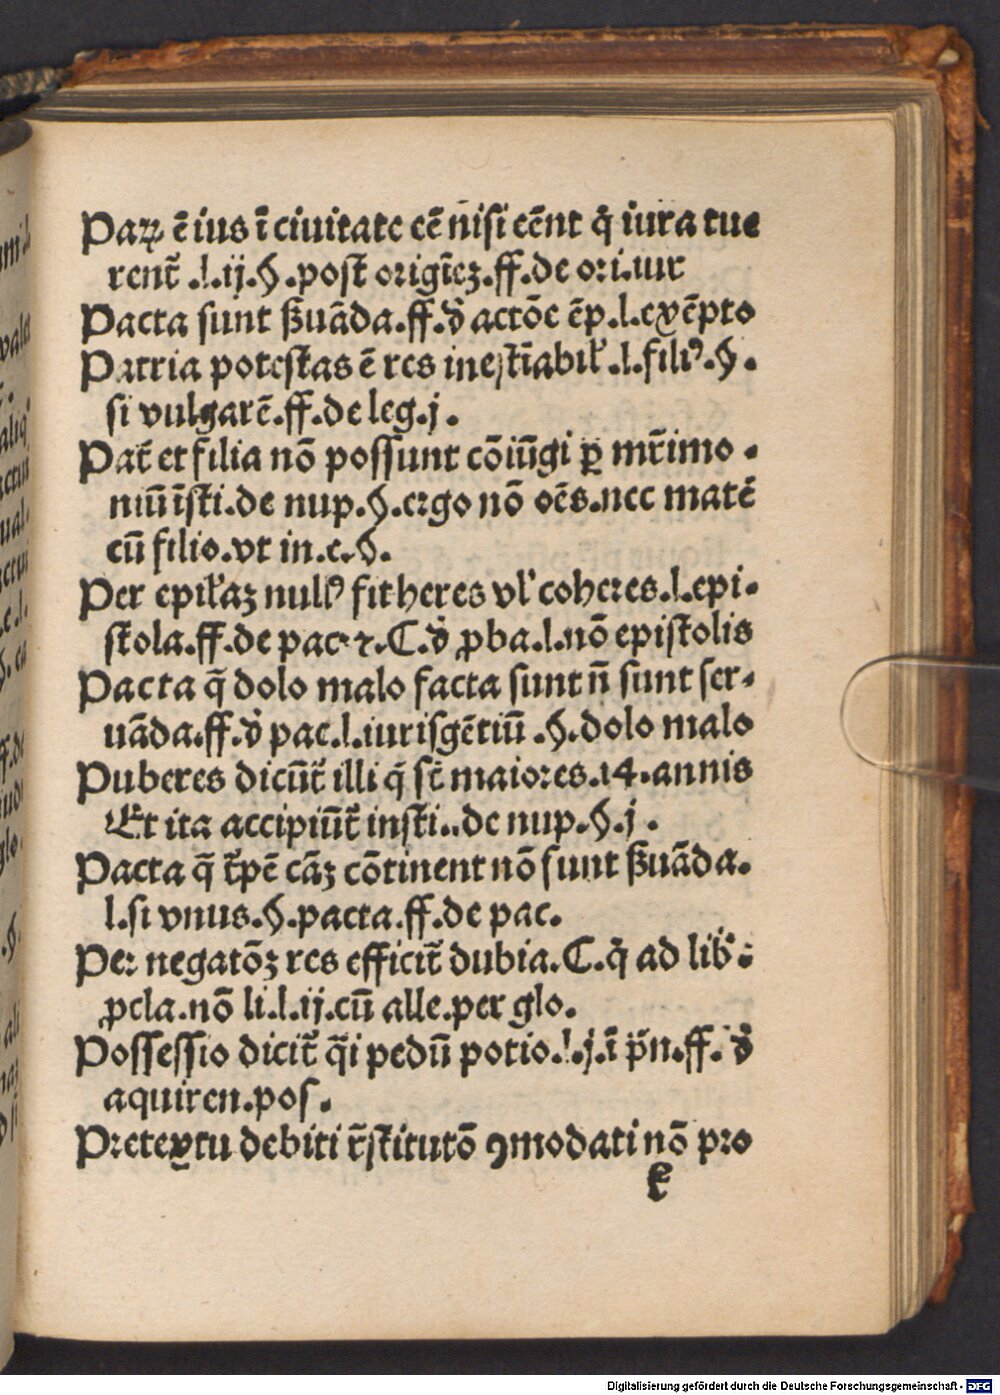 Paꝝ ē ius ī ciuitate eē nisi eēnt q̇ iura tue
rent᷑ .l.ij.§.post origīez.ff.de ori.iur
Pacta sunt ẞuāda.ff.đ actōe ēp.l.exēpto
Patria potestas ē res inestīabil᷑.l.filiꝰ.§.
si vulgarē.ff.de leg.j.
Pat᷑ et filia nō possunt cōiūgi ꝑ mr̄imo.
niū īsti.de nup.§.ergo nō oēs.nec mat᷑
cū filio.vt in.e.§.
Per epil᷑az nullꝰ fit heres vl᷑ coheres.l.epi.
stola.ff.de pac ⁊.C.đ ꝓba.l.nō epistolis
Pacta q̄ dolo malo facta sunt n̄ sunt ser.
uāda.ff.đ pac.l.iurisgētiū .§.dolo malo
Puberes dicūt᷑ illi q̇ st̄ maiores.14.annis
Et ita accipiūt᷑ insti..de nup.§.j.
Pacta q̄ t᷑pē cāz cōtinent nō sunt ẞuāda.
l.si vnus.§.pacta.ff.de pac.
Per negatōz res efficit᷑ dubia.C.q̇ ad lib᷑.
ꝓcla.nō li.l.ij.cū alle.per glo.
Possessio dicit᷑ q̄i pedū potio.l.j.ī p᷑n.ff.đ
aquiren.pos.
Pretextu debiti r᷑stitutō ꝯmodati nō pro
k
Digitalisierung gefördert durch die Deutsche Forschungsgemeinschaft - DFG